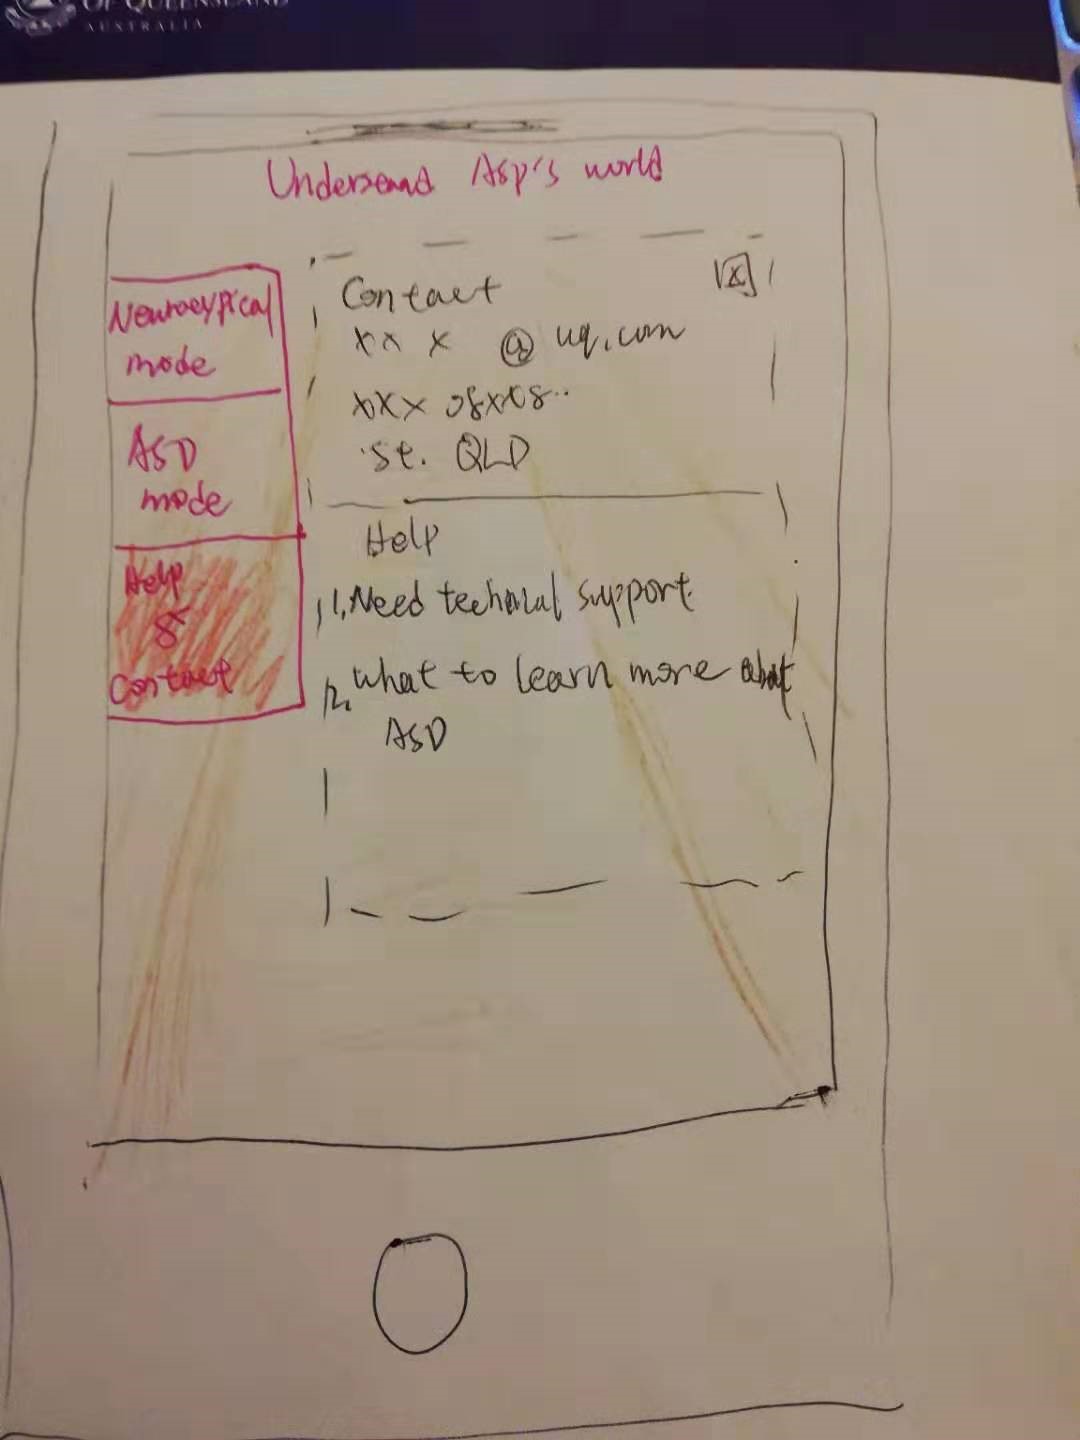 OF QUEENSLAND
AUSTRALIA
Undersand Asp's world
Neurotypical
mode
ASD
mode
Help
&
Contact
Contact
x
xx x @ uq.com
xxx 08xx08..
st. QLD
Help
1. Need techincal support
2. What to learn more about
ASD